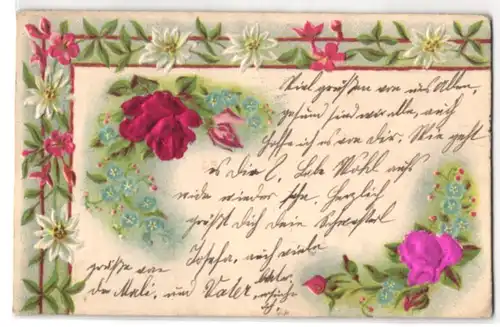 Viel grüßen von uns Allen,
gesund sind wir alle, auch
hoffe ich es von dir. Wie geht
es Dir?. Lebe Wohl aufs
wieder sehn. Herzlich
grüßt Dich dein Schwesterl
Josefa, auch viele
grüße von
der Mali, und Vater